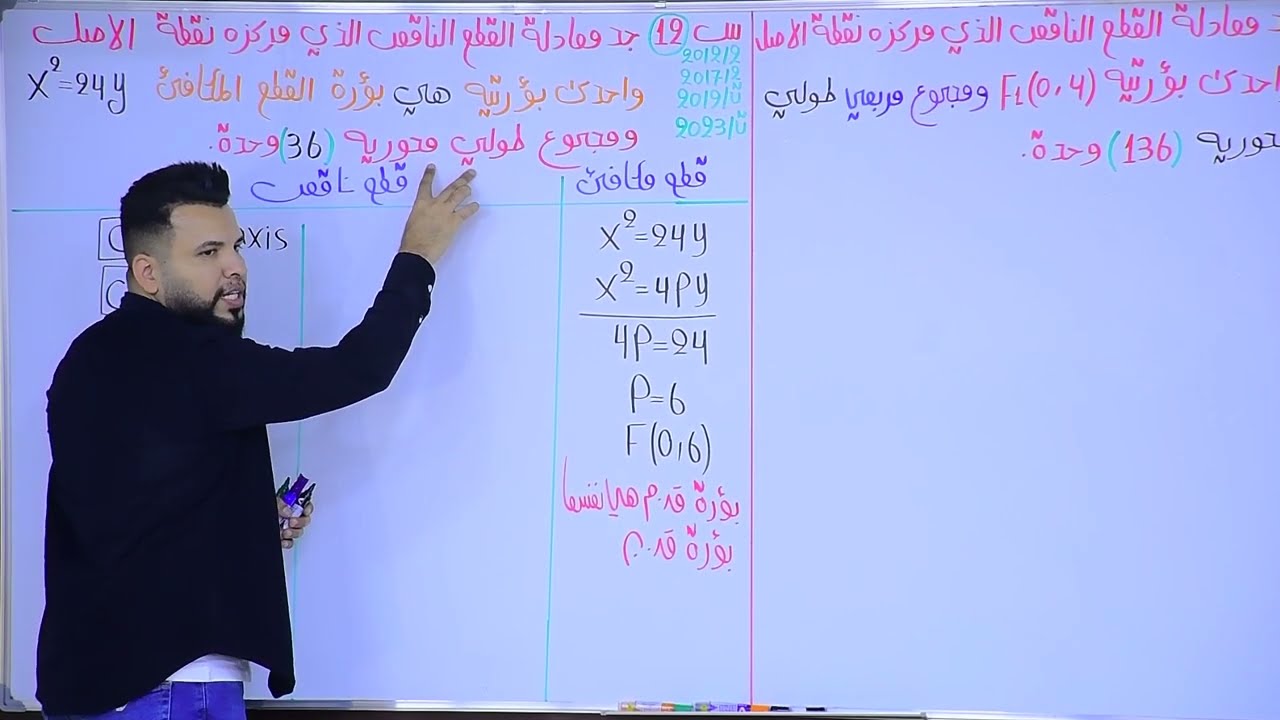 س 12 جد معادلة القطع الناقص الذي مركزه نقطة الاصل
2012/2
2017/2
2019/ت
2023/ت
واحدى بؤرتيه هي بؤرة القطع المكافئ x²=24y
ومجموع طولي محوريه (36) وحدة.
قطع مكافئ
x²=24y
x²=4Py
4P=24
P=6
F(0,6)
بؤرة ق.م هي نفسها
بؤرة ق.ن
قطع ناقص
axis
معادلة القطع الناقص الذي مركزه نقطة الاصل
احدى بؤرتيه F₁(0,4) ومجموع مربعي طولي
محوريه (136) وحدة.